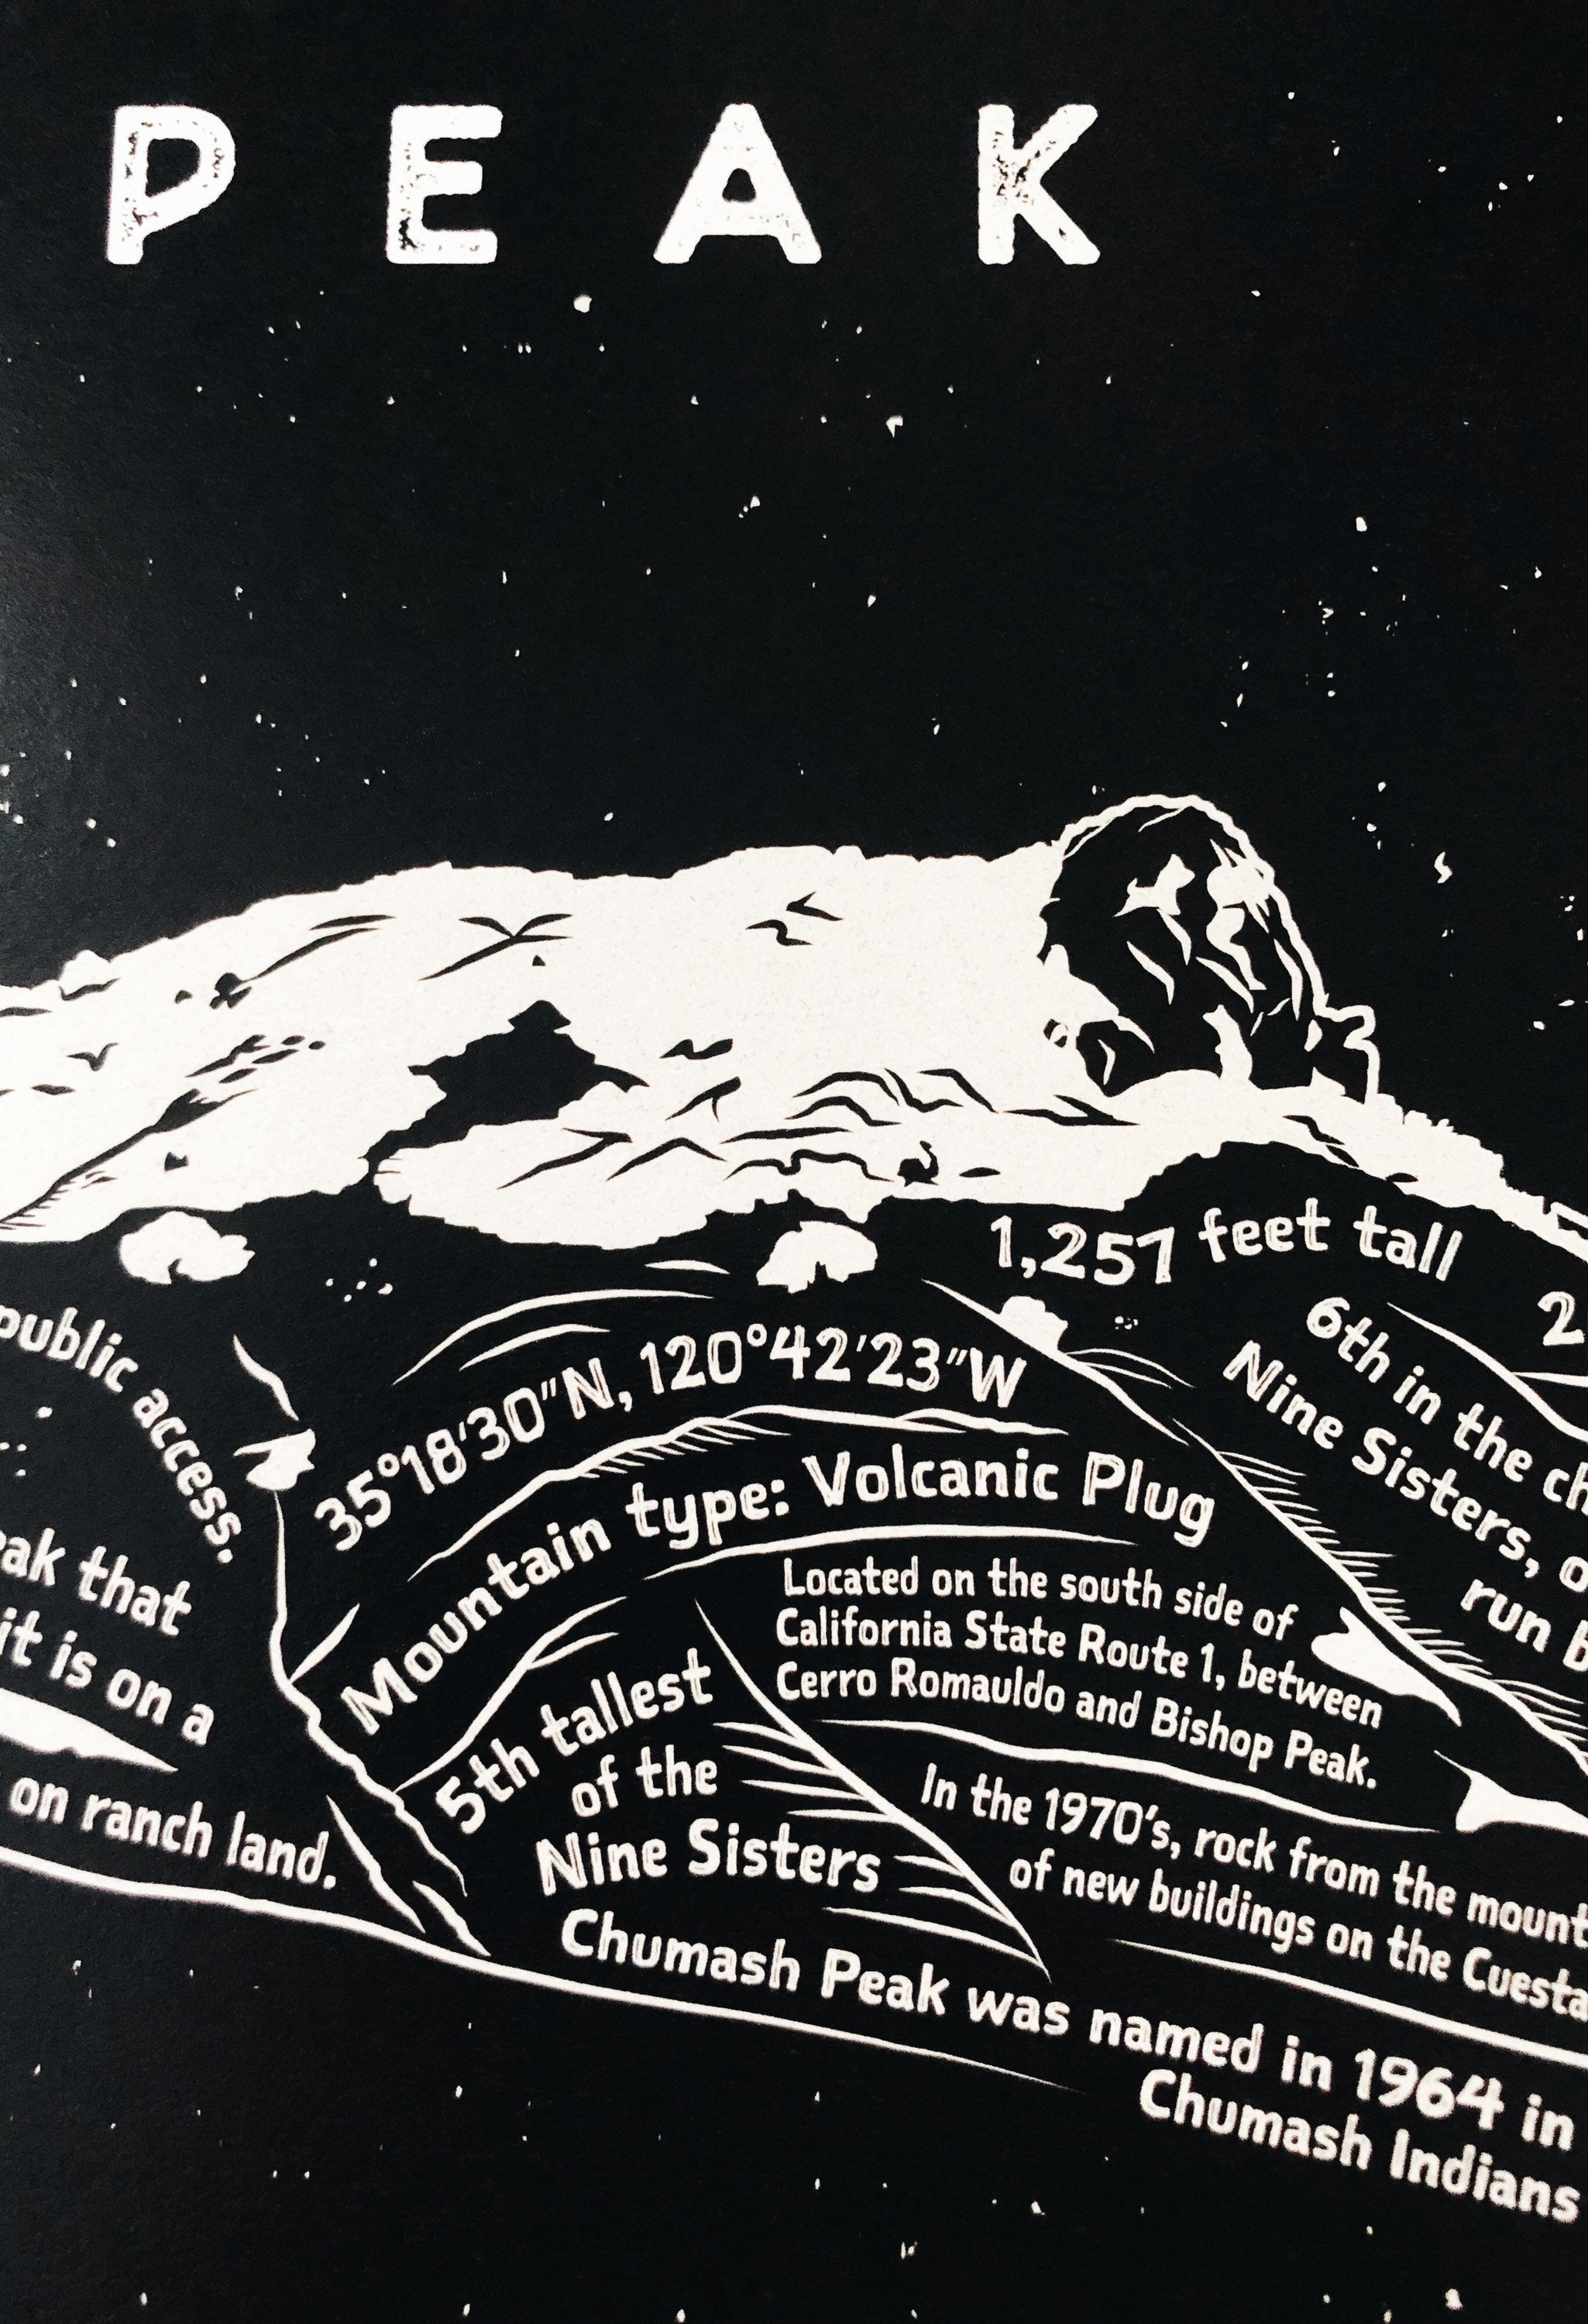 PEAK
1,257 feet tall
2
6th in the ch
Nine Sisters, o
run b
35°18'30"N, 120°42'23"W
Mountain type: Volcanic Plug
Located on the south side of
California State Route 1, between
Cerro Romauldo and Bishop Peak.
5th tallest
of the
Nine Sisters
In the 1970's, rock from the mount
of new buildings on the Cuesta
Chumash Peak was named in 1964 in
Chumash Indians
public access.
eak that
it is on a
on ranch land.